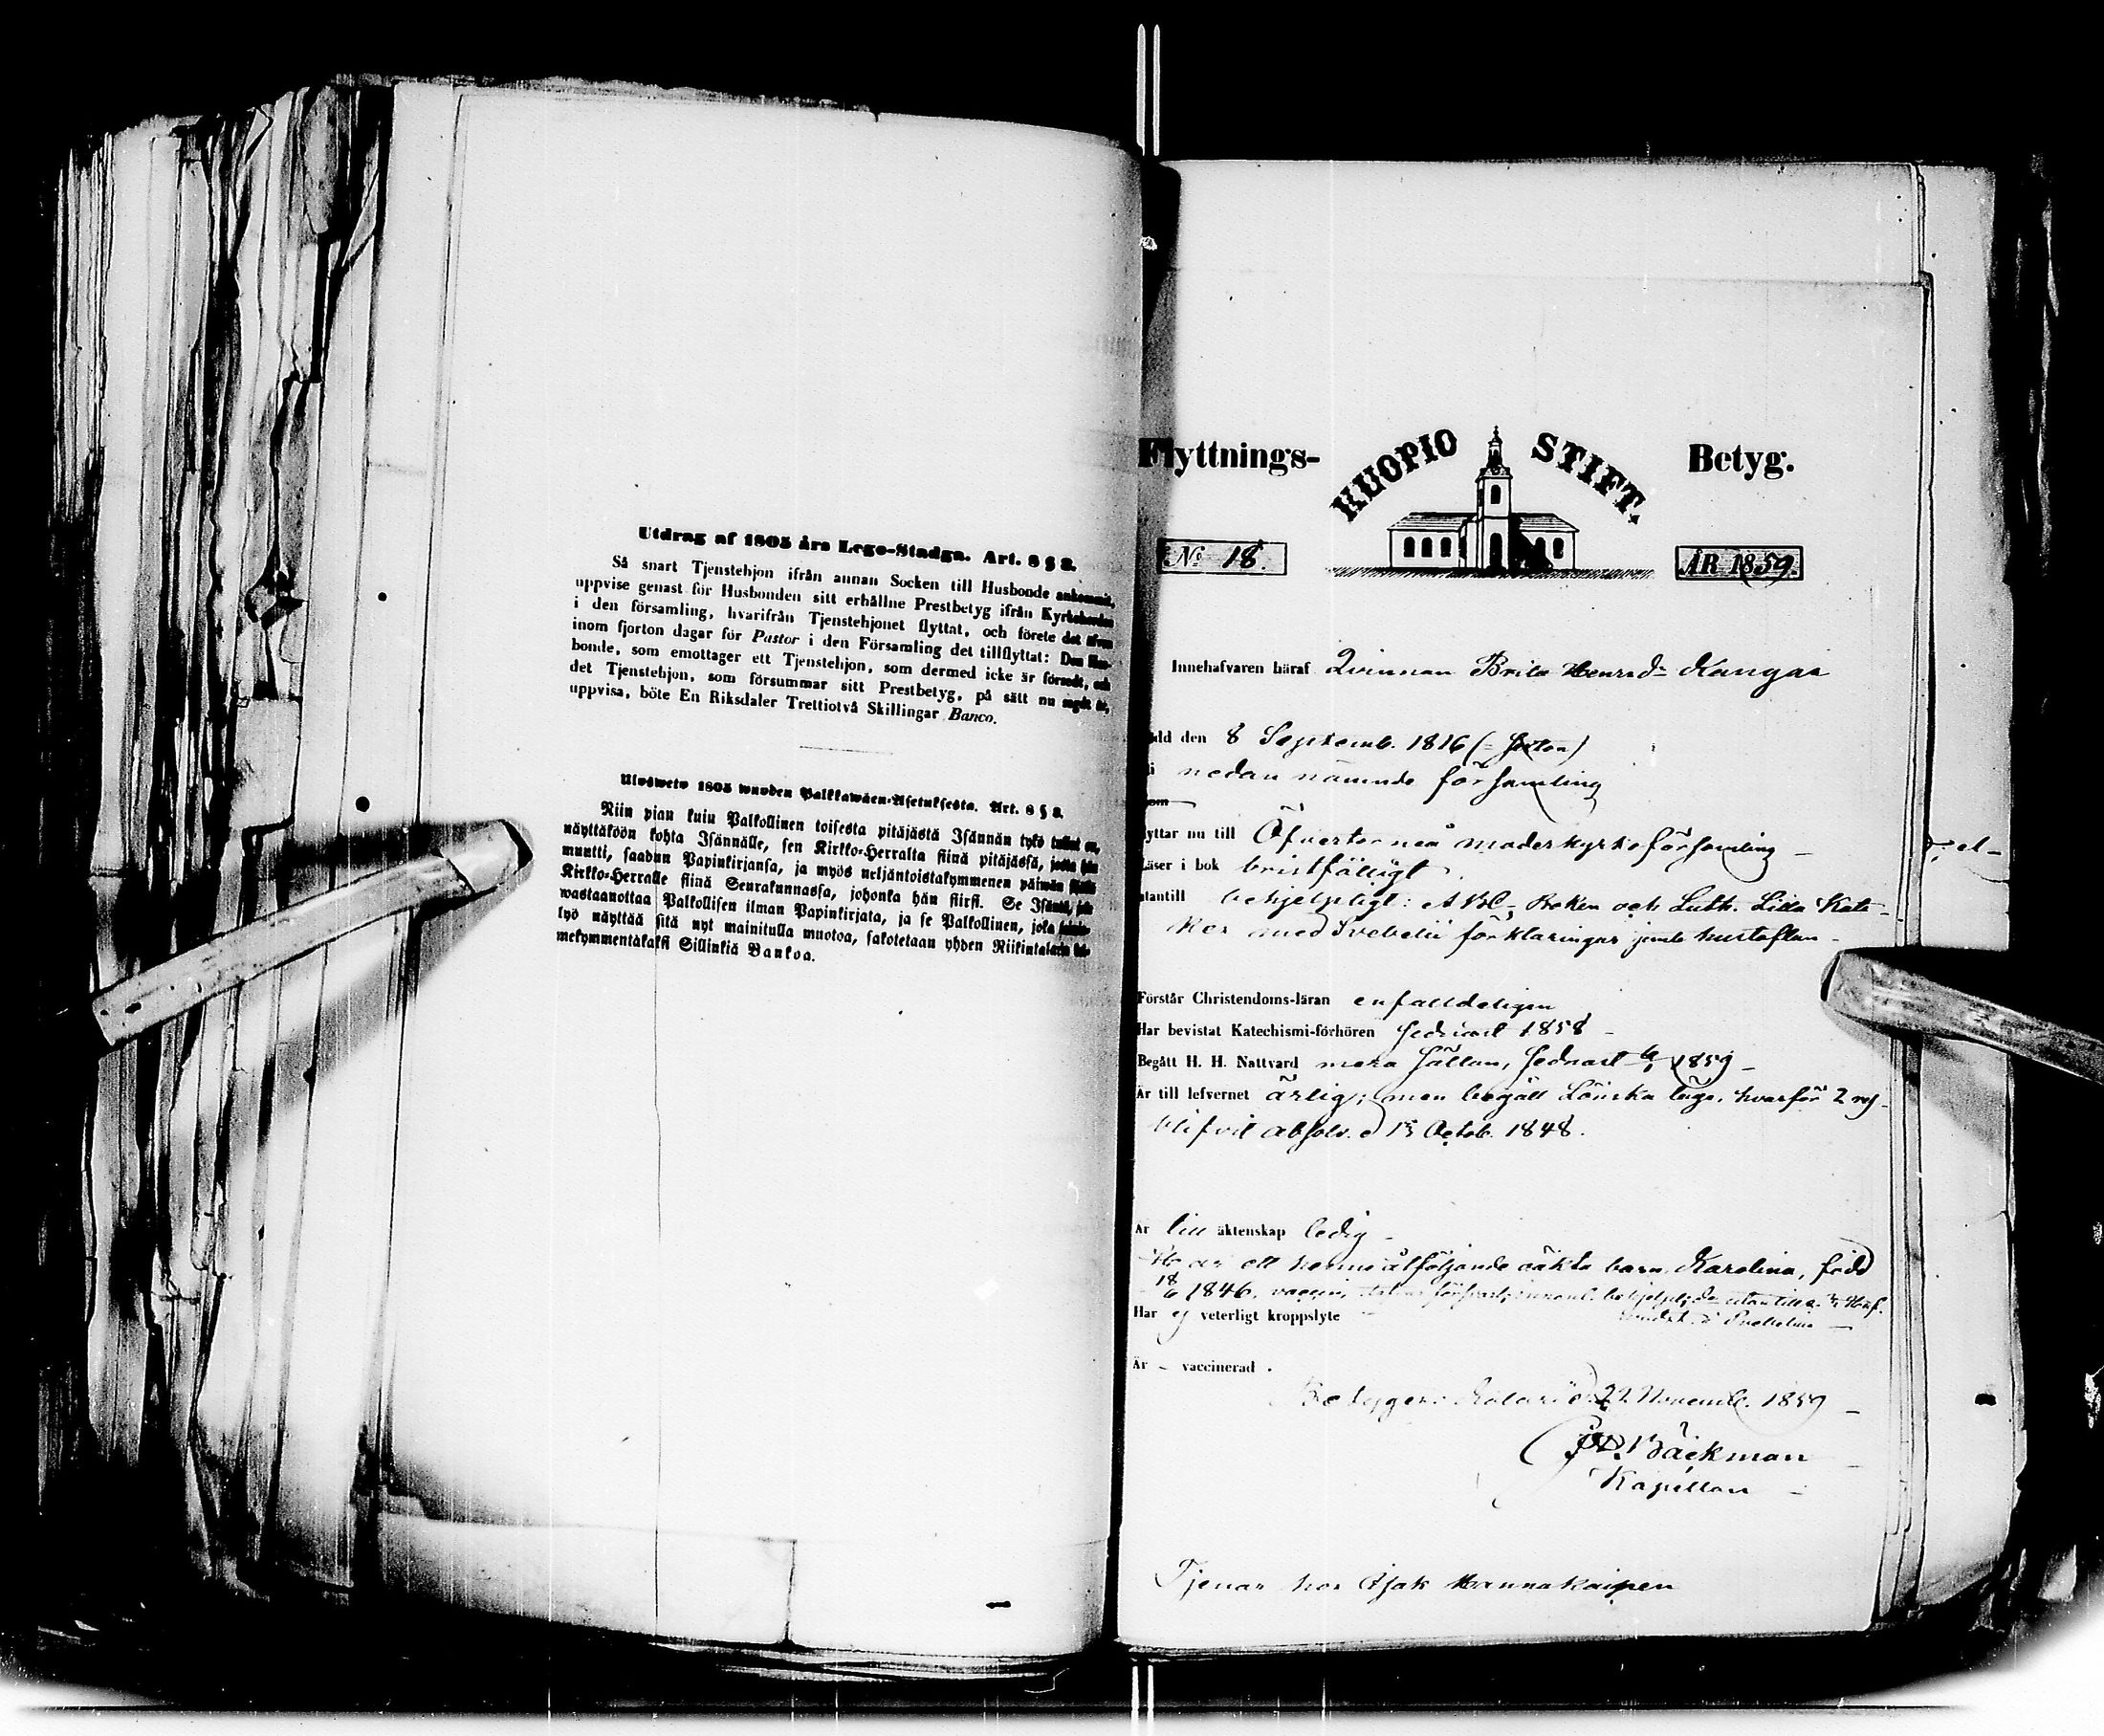 Utdrag af 1805 års Lego-Stadga. Art. 8 § 8.
Så snart Tjenstehjon ifrån annan Socken till Husbonde ankommit,
uppvise genast för Husbonden sitt erhållne Prestbetyg ifrån Kyrkoherden
i den församling, hvarifrån Tjenstehjonet flyttat, och förete det äfven
inom fjorton dagar för Pastor i den Församling det tillflyttat: Den Hus-
bonde, som emottager ett Tjenstehjon, som dermed icke är försedt, och
det Tjenstehjon, som försummar sitt Prestbetyg, på sätt nu sagdt är,
uppvisa, böte En Riksdaler Trettiotvå Skillingar Banco.
Ulosweto 1805 wuoden Palkkawäen-Asetuksesta. Art. 8 § 8.
Niin pian kuin Palkollinen toisesta pitäjästä Isännän tykö tullut on,
näyttäköön kohta Isännälle, sen Kirkko-Herralta siinä pitäjässä, josta hän
muutti, saadun Papinkirjansa, ja myös neljäntoistakymmenen päiwän sisällä
Kirkko-Herralle siinä Seurakunnassa, johonka hän siirsi. Se Isäntä, joka
wastaanottaa Palkollisen ilman Papinkirjata, ja se Palkollinen, joka
lyö näyttää sitä nyt mainitulla muotoa, sakotetaan yhden Riikintalarin
mekymmentäkaksi Sillinkiä Bankoa.
Flyttnings- KUOPIO STIFT. Betyg.
No 18. ÅR 1859.
Innehafvaren häraf Qvinnan Brita Henrsdr Kangas
född den 8 Septemb. 1816 (= sexton)
i nedan nämnde församling
flyttar nu till Öfvertorneå moderkyrkoförsamling
Läser i bok bristfälligt
utantill behjelpligt: ABC-Boken och Luth. Lilla Kate-
kes med Svebelii förklaringar jemte hustaflan
Förstår Christendoms-läran enfaldeligen
Har bevistat Katechismi-förhören sednast 1858
Begått H. H. Nattvard mera sällan, sednast 1859
Är till lefvernet ärlig; men begått Lönska läge, hvarför 2
blifvit absolv. d 15 Octob. 1848.
Är till äktenskap ledig
Har ett henne åtföljande oäkta barn, Karolina, född
18/6 1846, vaccin, behjelpl.
Har ej veterligt kroppslyte
Är – vaccinerad.
Betygar: Kolari d. 22 Novemb. 1859
Bäckman
Kapellan
Tjenar hos Isak Hannukainen